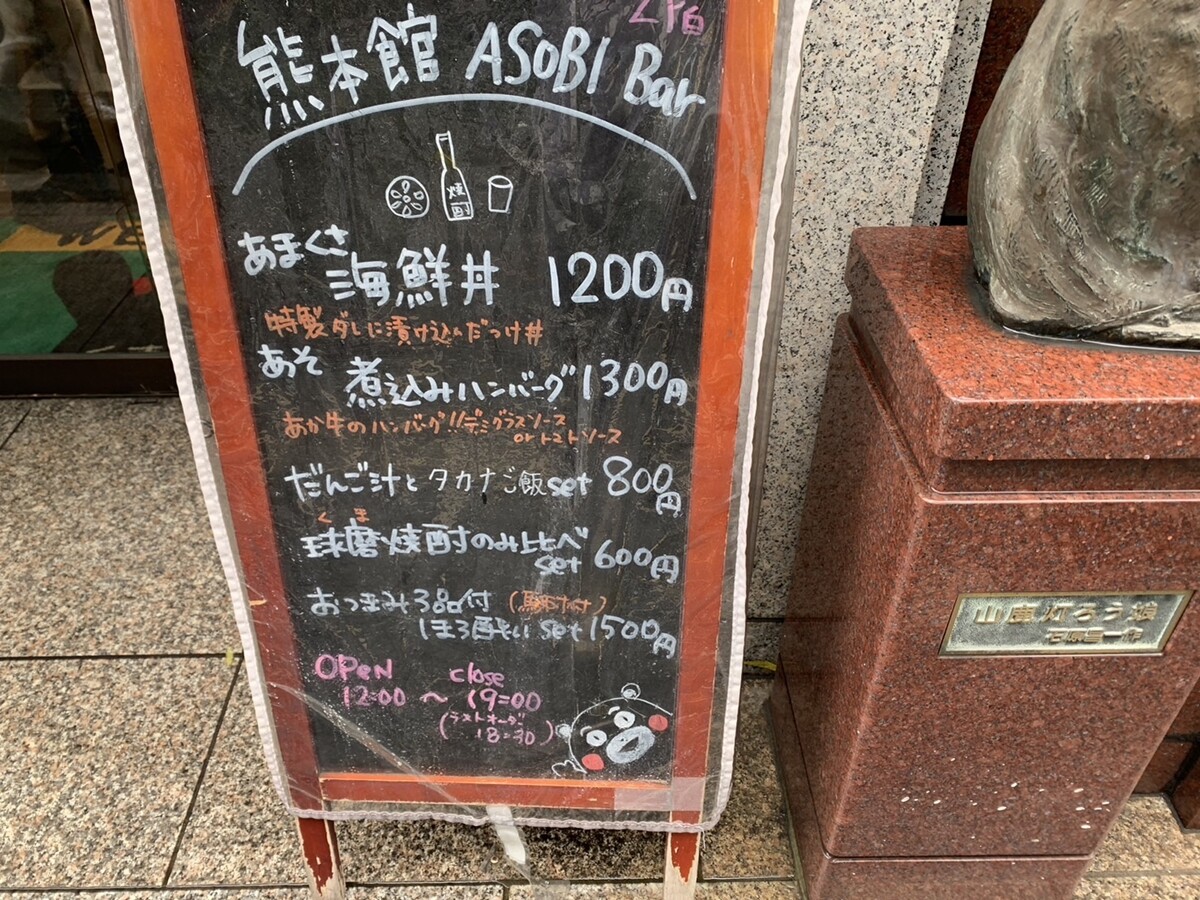 2F
熊本館 ASOBI Bar
焼酎
あまくさ
海鮮丼 1200円
特製ダレに漬け込んだづけ丼
あそ
煮込みハンバーグ 1300円
あか牛のハンバーグ!!デミグラスソース
orトマトソース
だんご汁とタカナご飯set 800円
くま
球磨焼酎のみ比べ
set 600円
おつまみ3品付(馬刺付)
ほろ酔い set 1500円
OPEN close
12:00 〜 19:00
(ラストオーダー
18:30)
山鹿灯ろう娘
石原昌一作